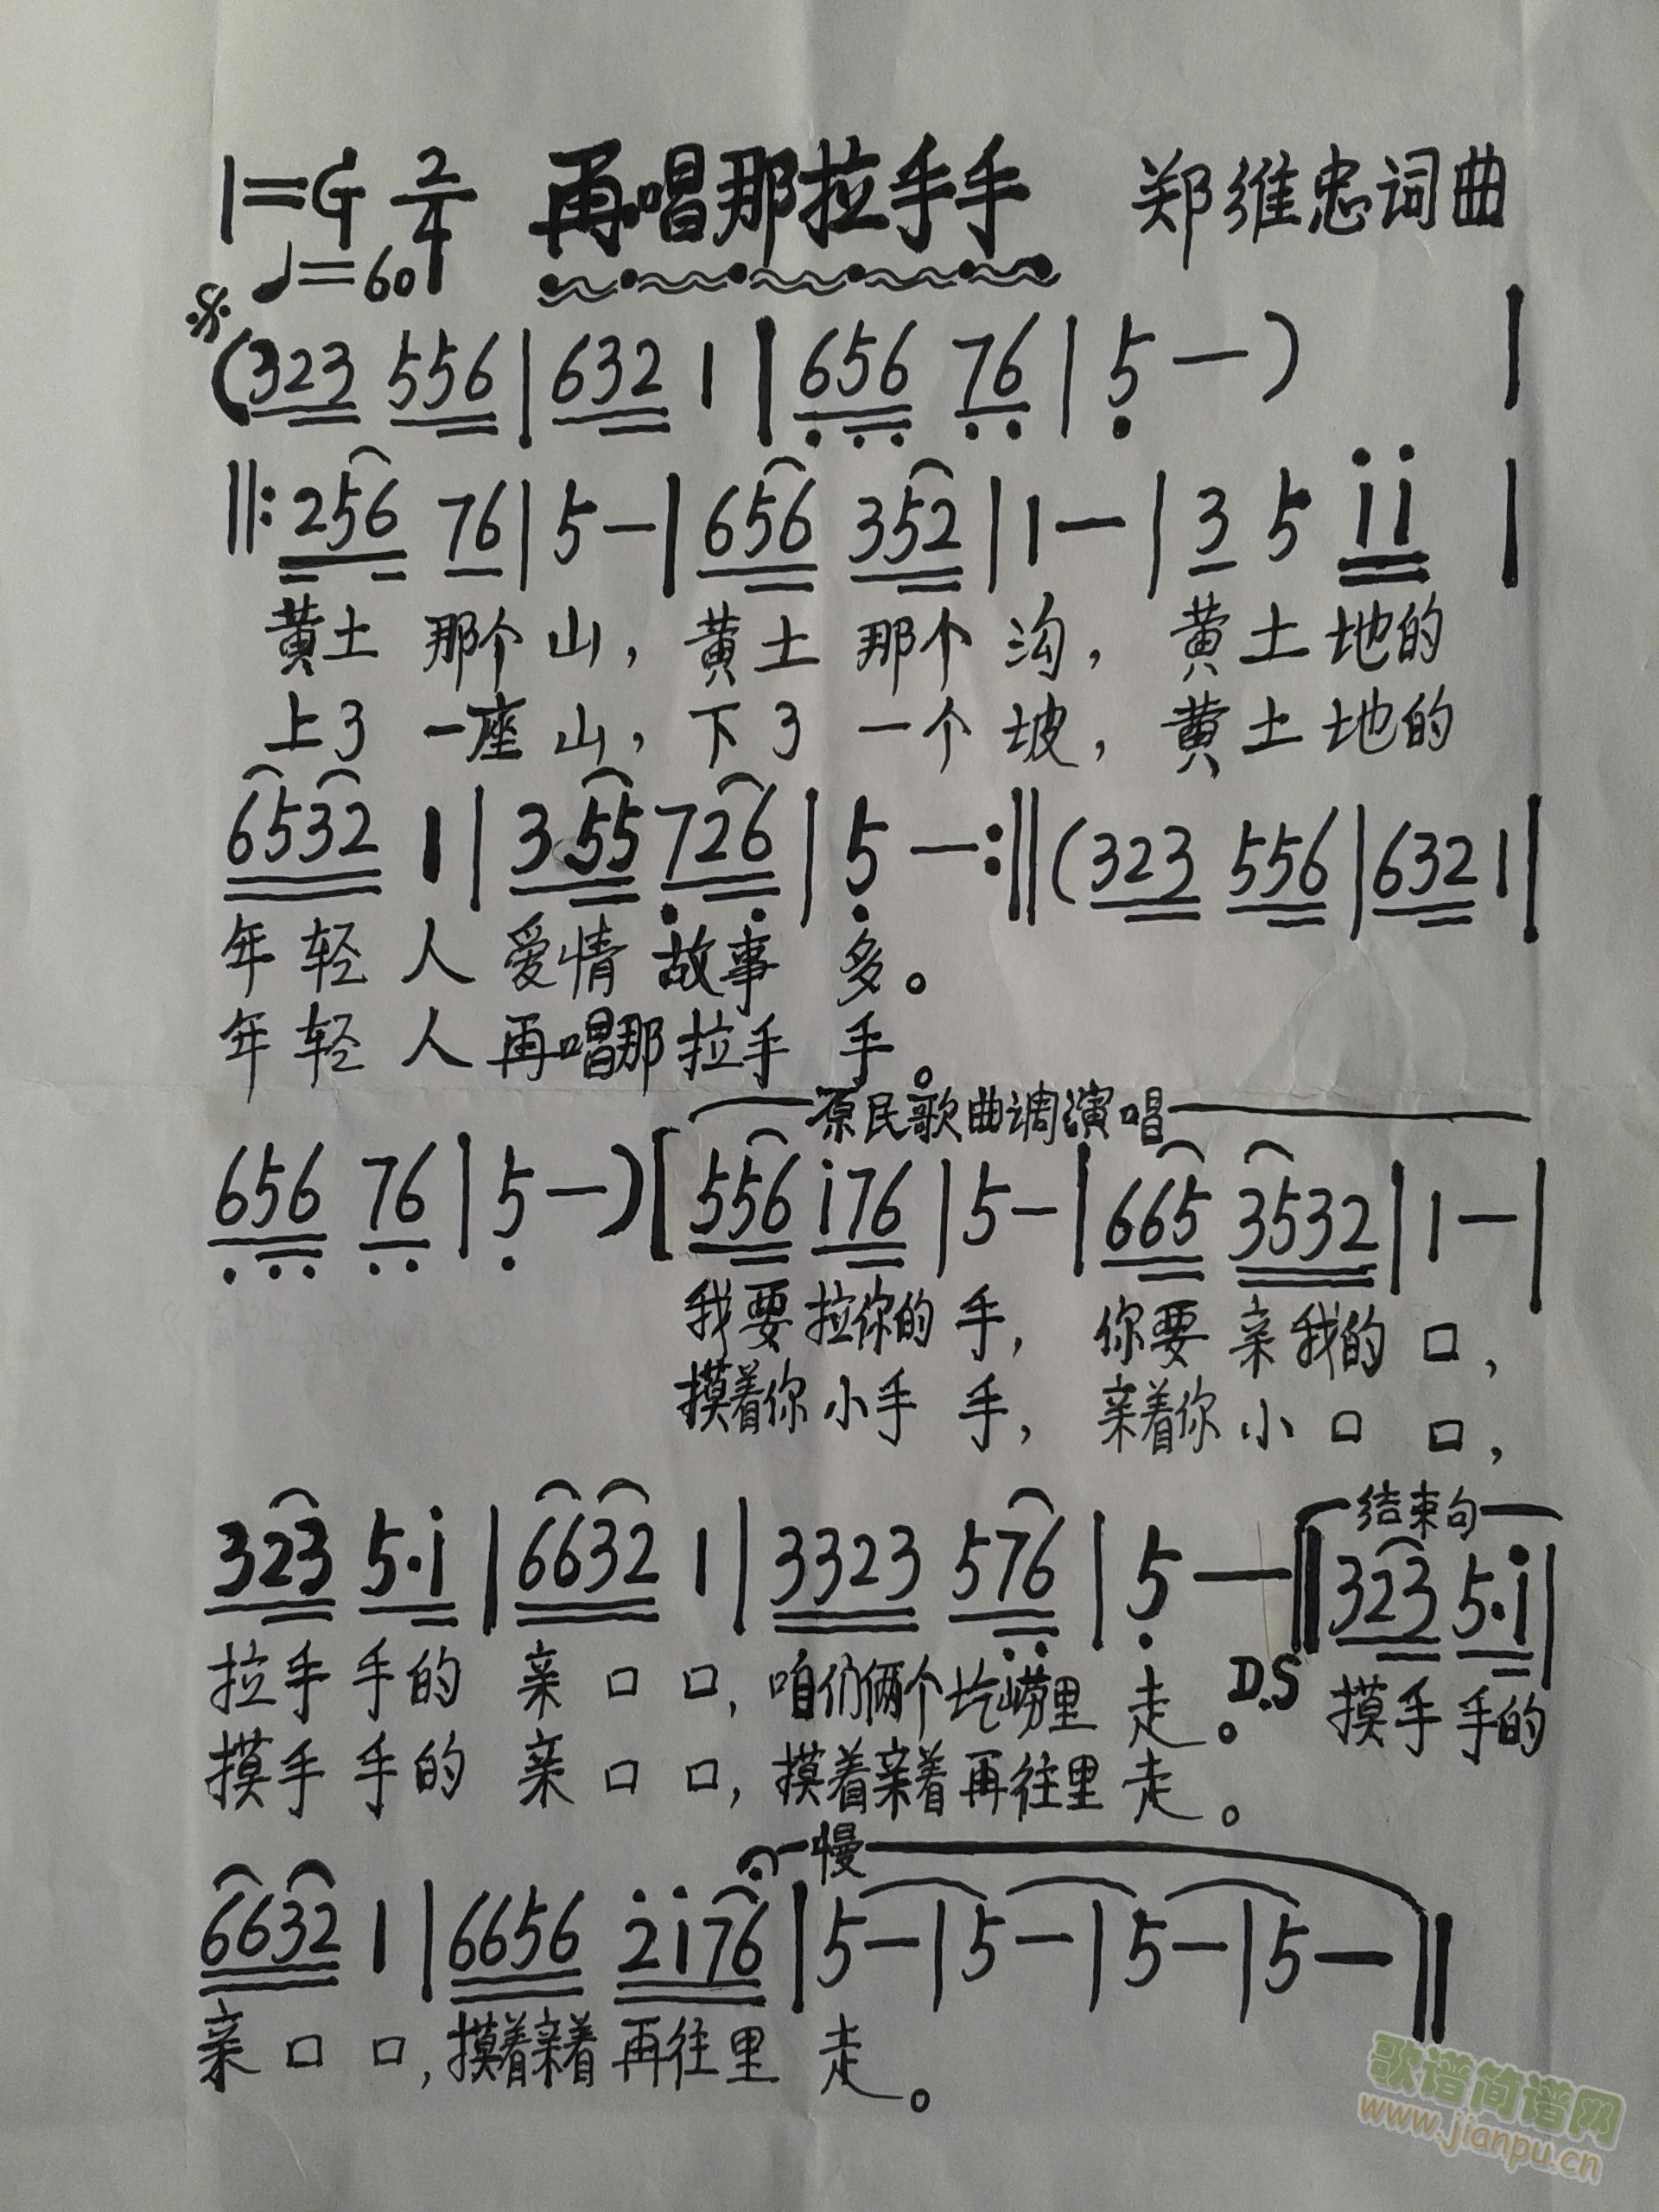 1=G 2/4 再唱那拉手手 郑维忠词曲
♩=60
(323 556|632 1|656 76|5 —) |
‖:256 76|5 —|656 352|1 —|3 5 ii |
黄土 那个 山, 黄土 那个 沟, 黄土地的
上了 一座山, 下了 一个 坡, 黄土地的
6532 1|3 55 726|5 —:‖(323 556|632 1|
年轻人爱情故事 多。
年轻人再唱那拉手 手。
原民歌曲调演唱
656 76|5 —)[556 i76|5 —|665 3532|1 —|
我要拉你的手, 你要亲我的口,
摸着你小手手, 亲着你小口口,
结束句
323 5·i|6632 1|3323 576|5 —‖323 5·i|
拉手手的 亲口口, 咱们俩个圪崂里 走。 D.S 摸手手的
摸手手的 亲口口, 摸着亲着再往里走。
慢
6632 1|6656 2i76|5 —|5 —|5 —|5 —‖
亲口口, 摸着亲着 再往里 走。
歌谱简谱网
www.jianpu.cn